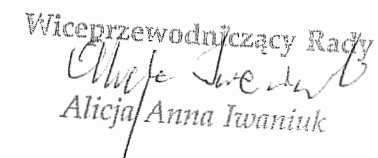 Wiceprzewodniczący Rady
Alicja Anna Iwaniuk